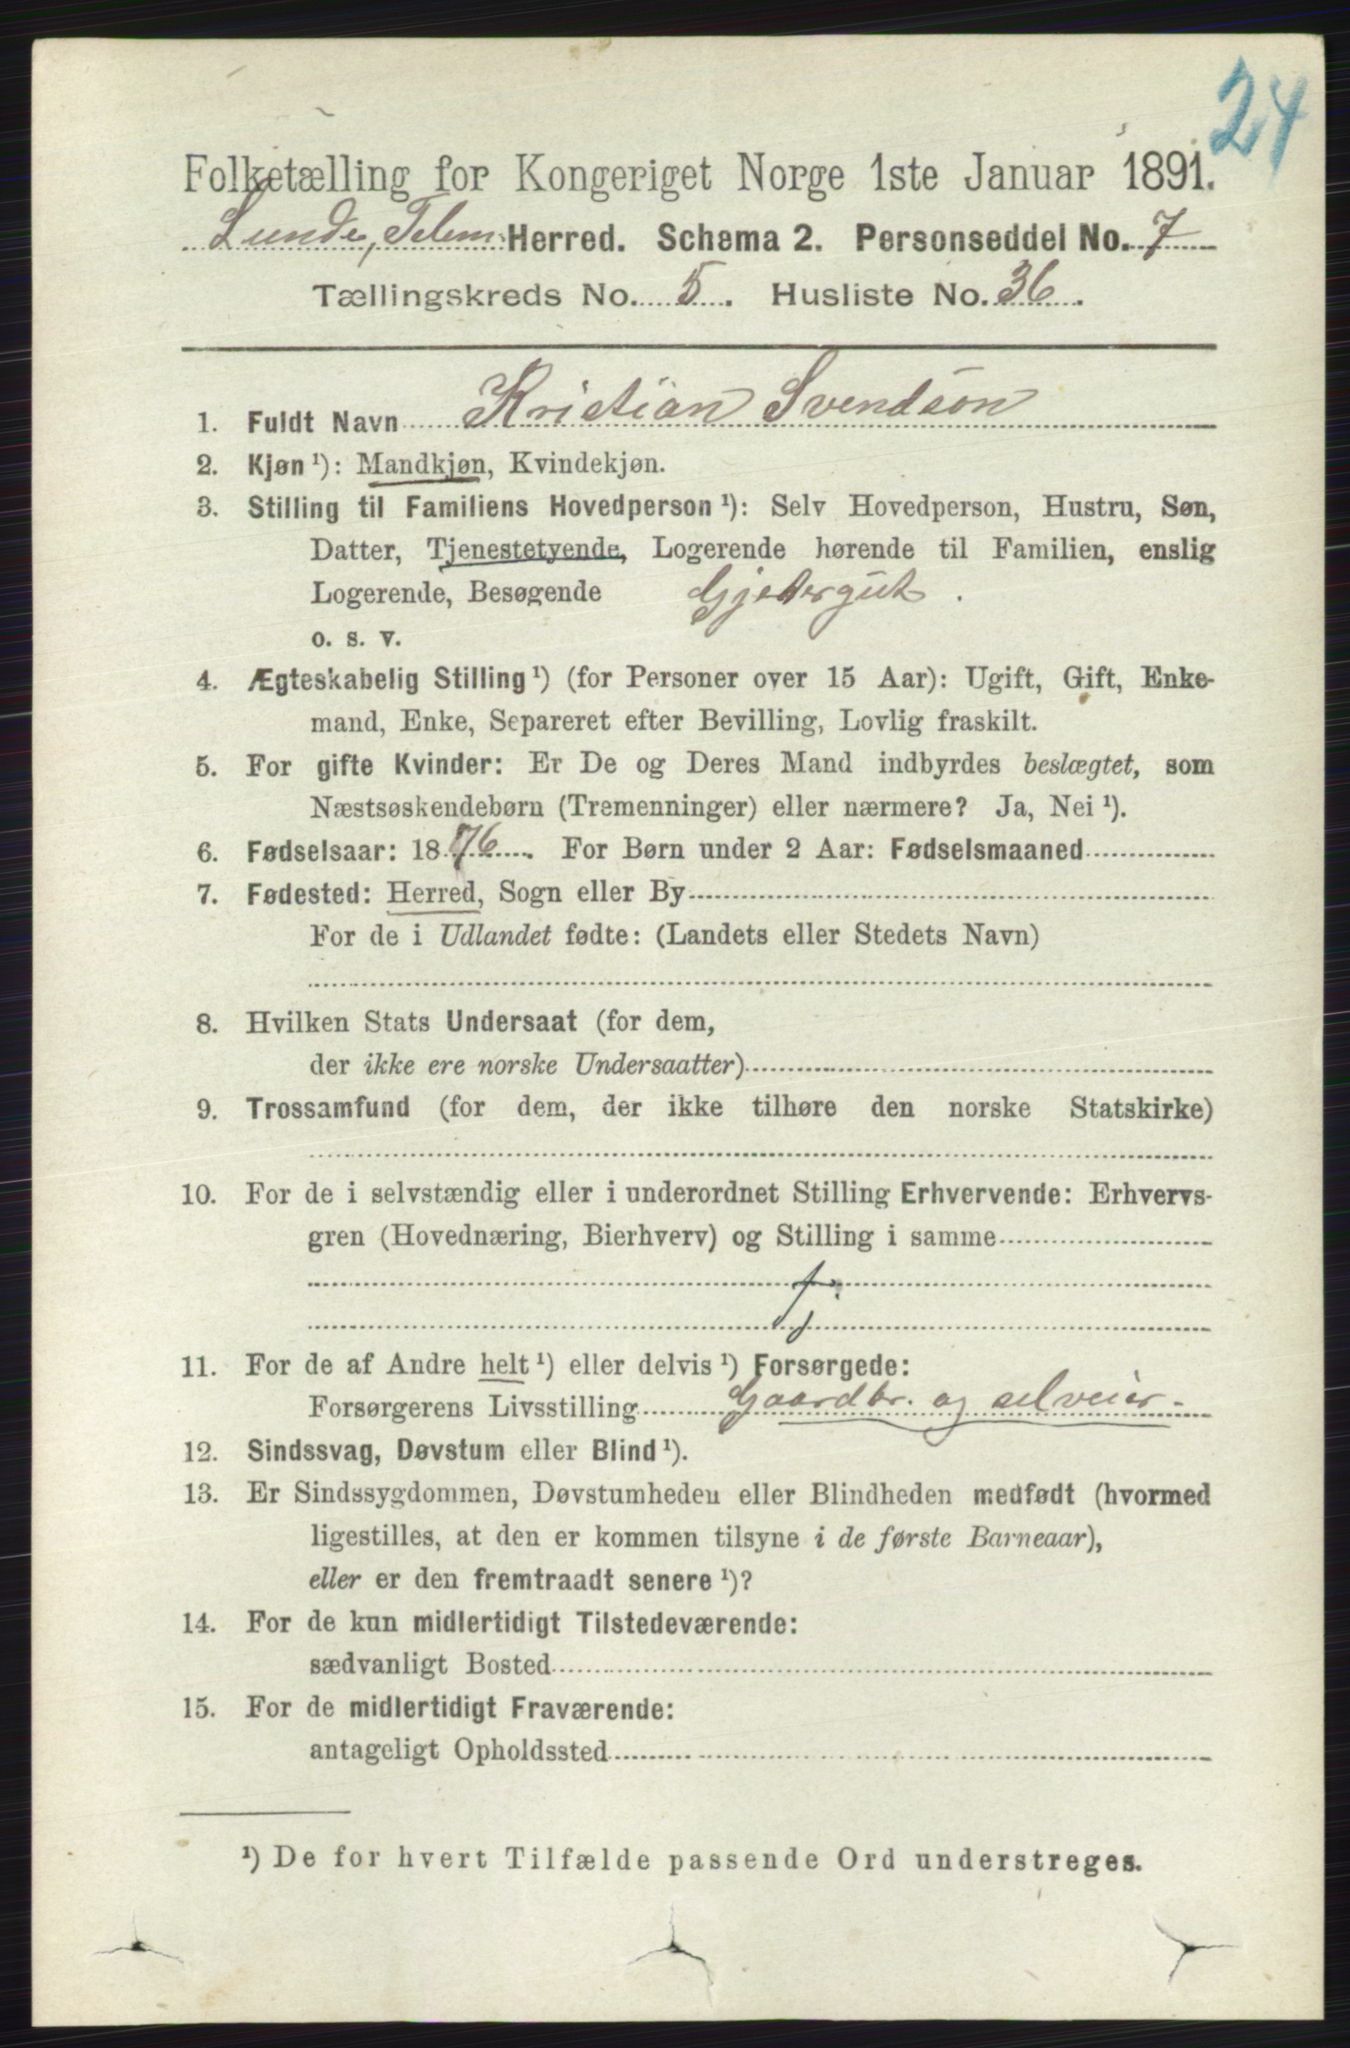 24
Folketælling for Kongeriget Norge 1ste Januar 1891.
Lunde, Telem. Herred. Schema 2. Personseddel No. 7
Tællingskreds No. 5. Husliste No. 36.
1. Fuldt Navn Kristian Svendsøn
2. Kjøn ¹): Mandkjøn, Kvindekjøn.
3. Stilling til Familiens Hovedperson ¹): Selv Hovedperson, Hustru, Søn,
Datter, Tjenestetyende, Logerende hørende til Familien, enslig
Logerende, Besøgende Gjetergut.
o. s. v.
4. Ægteskabelig Stilling ¹) (for Personer over 15 Aar): Ugift, Gift, Enke-
mand, Enke, Separeret efter Bevilling, Lovlig fraskilt.
5. For gifte Kvinder: Er De og Deres Mand indbyrdes beslægtet, som
Næstsøskendebørn (Tremenninger) eller nærmere? Ja, Nei ¹).
6. Fødselsaar: 1876. For Børn under 2 Aar: Fødselsmaaned
7. Fødested: Herred, Sogn eller By
For de i Udlandet fødte: (Landets eller Stedets Navn)
8. Hvilken Stats Undersaat (for dem,
der ikke ere norske Undersaatter)
9. Trossamfund (for dem, der ikke tilhøre den norske Statskirke)
10. For de i selvstændig eller i underordnet Stilling Erhvervende: Erhvervs-
gren (Hovednæring, Bierhverv) og Stilling i samme
f.
11. For de af Andre helt ¹) eller delvis ¹) Forsørgede:
Forsørgerens Livsstilling Gaardbr. og selveier.
12. Sindssvag, Døvstum eller Blind ¹).
13. Er Sindssygdommen, Døvstumheden eller Blindheden medfødt (hvormed
ligestilles, at den er kommen tilsyne i de første Barneaar),
eller er den fremtraadt senere ¹)?
14. For de kun midlertidigt Tilstedeværende:
sædvanligt Bosted
15. For de midlertidigt Fraværende:
antageligt Opholdssted
¹) De for hvert Tilfælde passende Ord understreges.